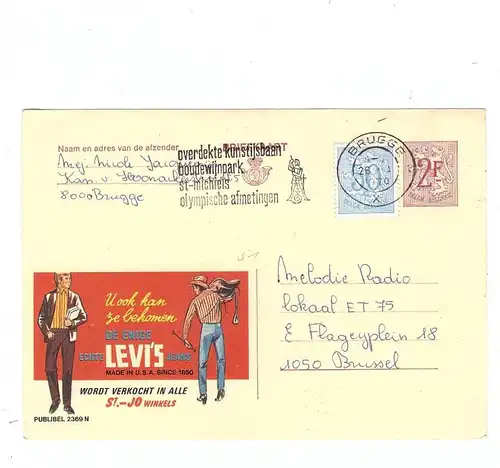 Naam en adres van de afzender
BRIEFKAART
Mej. Nicole
8000 Brugge
overdekte kunstijsbaan
boudewijnpark
st-michiels
olympische afmetingen
BRUGGE
2F
Melodie Radio
lokaal ET 75
E Flageyplein 18
1050 Brussel
U ook kan
ze bekomen
DE ENIGE
ECHTE LEVI'S JEANS
MADE IN U.S.A. SINCE 1850
WORDT VERKOCHT IN ALLE
ST.-JO WINKELS
PUBLIBEL 2369 N